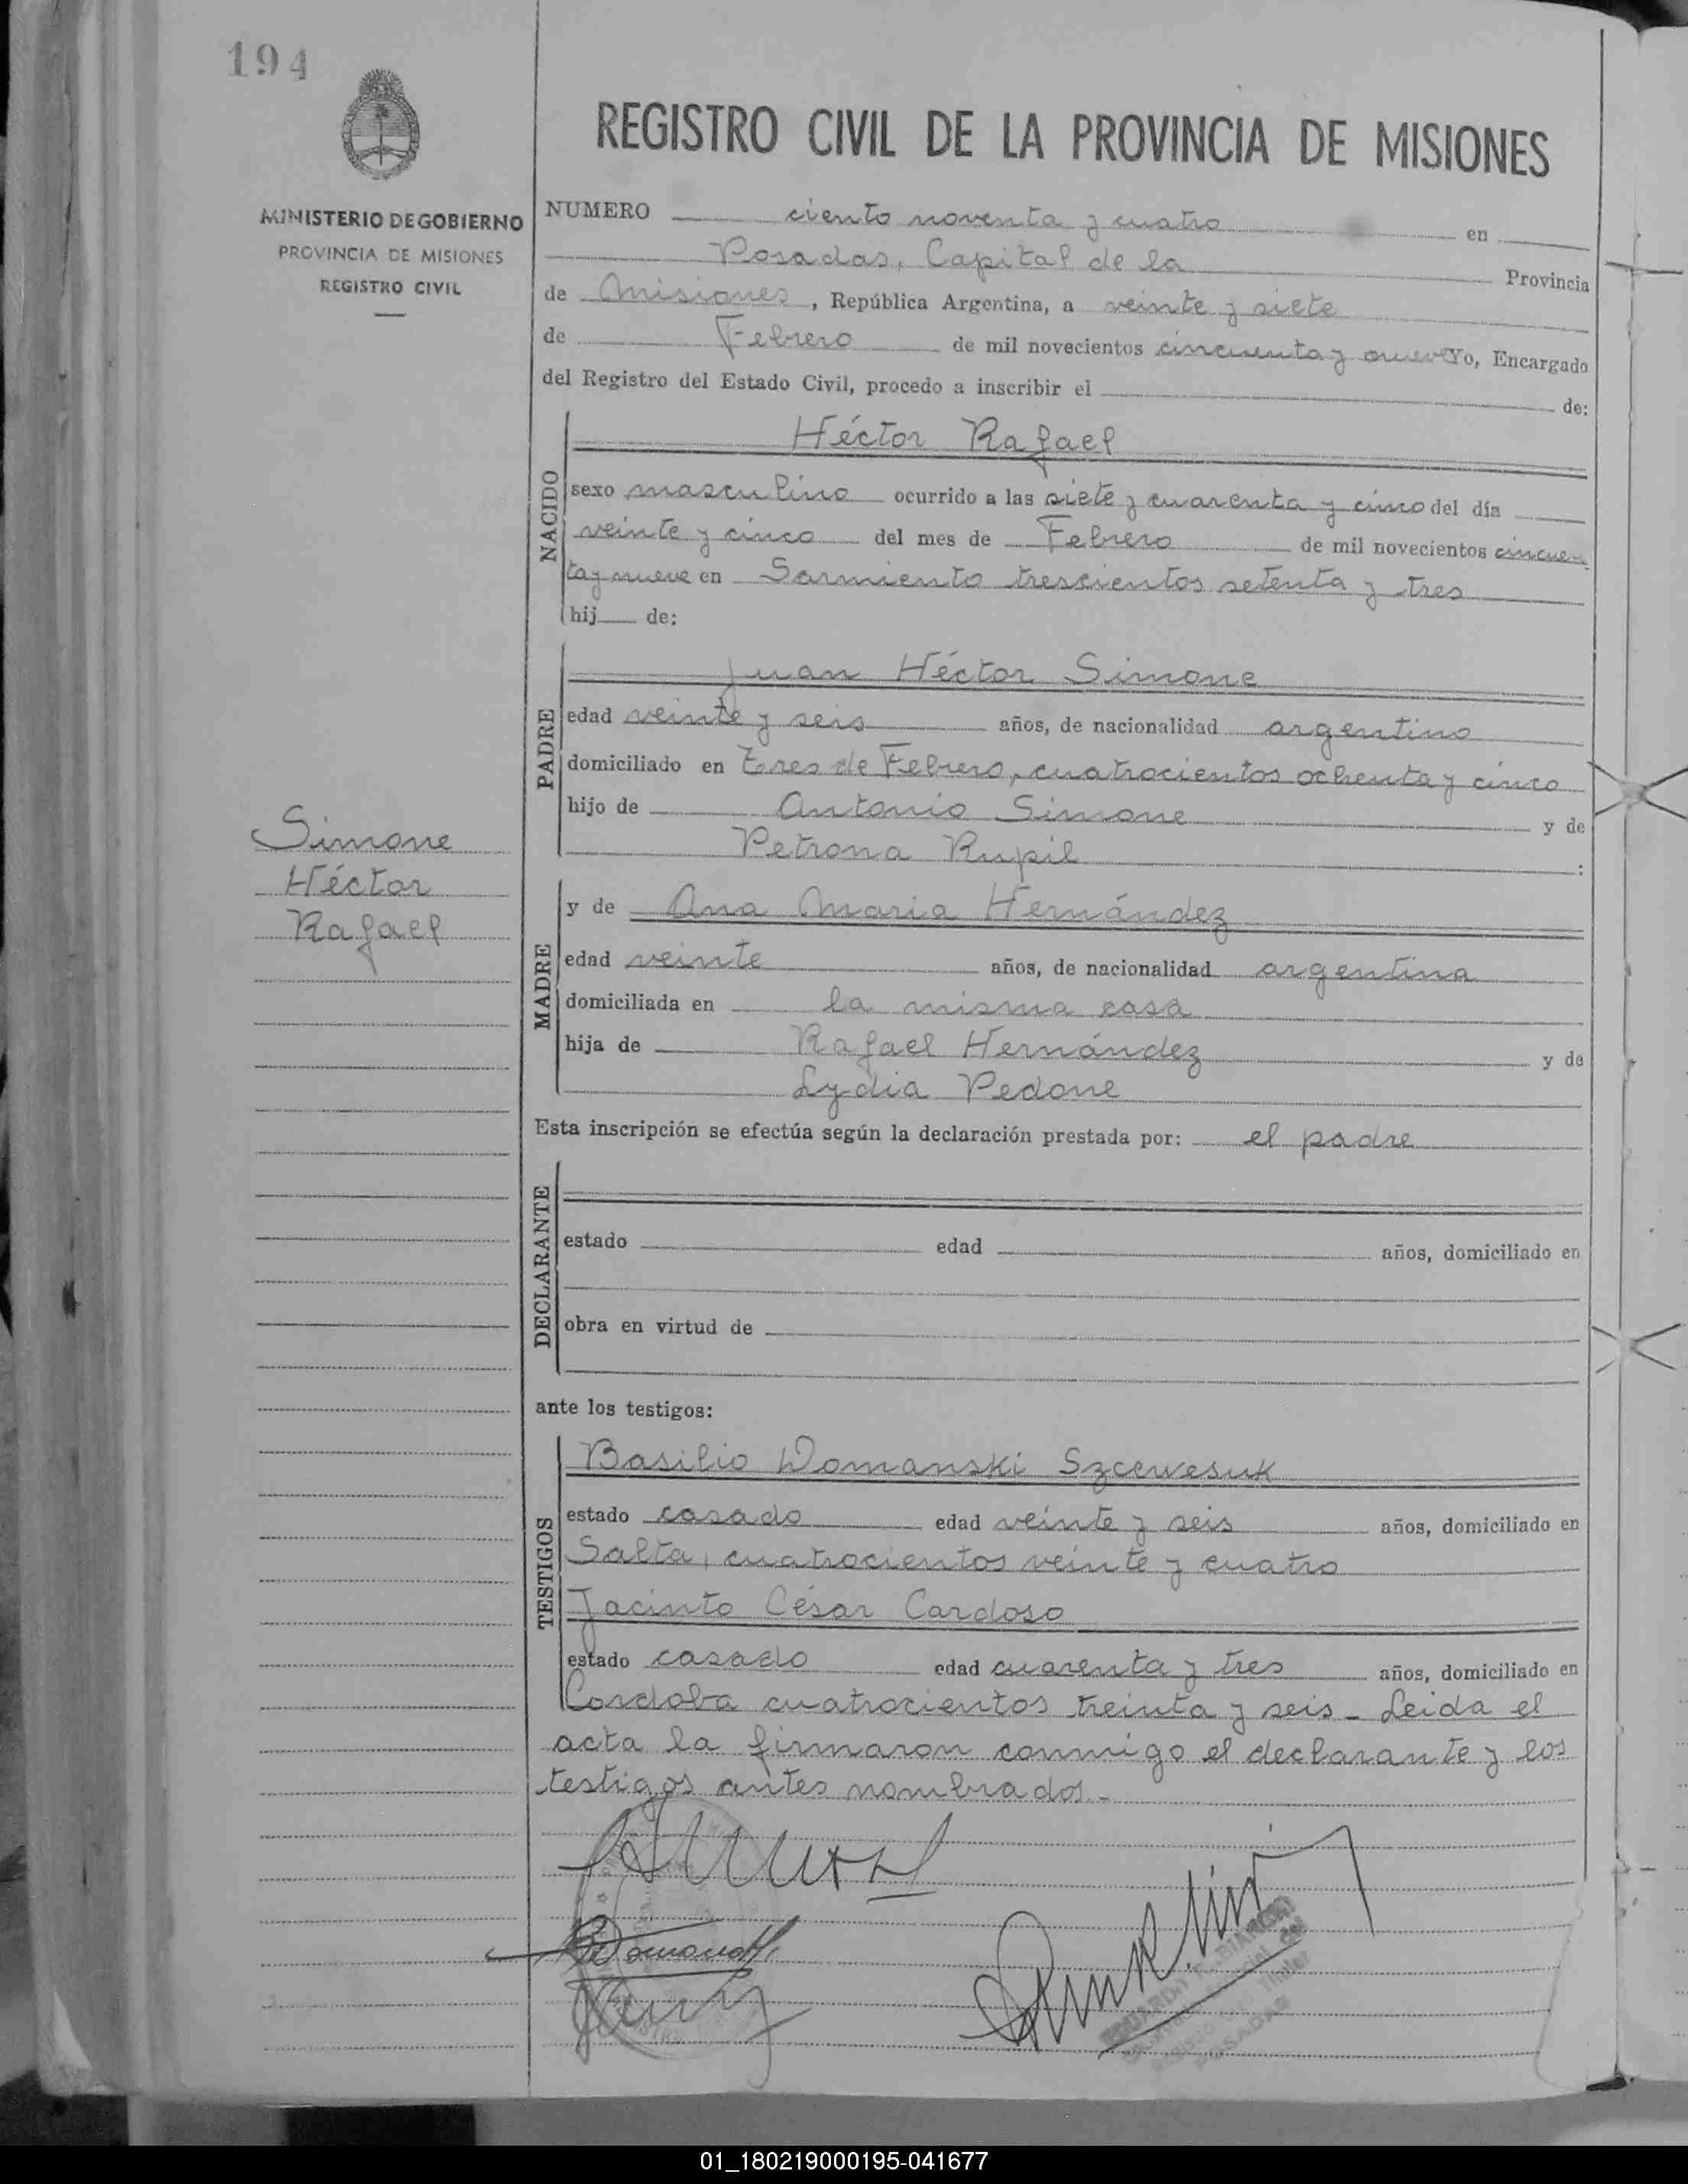 194
REGISTRO CIVIL DE LA PROVINCIA DE MISIONES
MINISTERIO DE GOBIERNO
PROVINCIA DE MISIONES
REGISTRO CIVIL
NUMERO ciento noventa y cuatro en
Posadas, Capital de la Provincia
de Misiones, República Argentina, a veinte y siete
de Febrero de mil novecientos cincuenta y nueve Yo, Encargado
del Registro del Estado Civil, procedo a inscribir el de:
NACIDO
Héctor Rafael
sexo masculino ocurrido a las siete y cuarenta y cinco del día
veinte y cinco del mes de Febrero de mil novecientos cincuen
ta y nueve en Sarmiento trescientos setenta y tres
hij de:
PADRE
Juan Héctor Simone
edad veinte y seis años, de nacionalidad argentino
domiciliado en Tres de Febrero, cuatrocientos ochenta y cinco
hijo de Antonio Simone y de
Petrona Rupil :
Simone
Héctor
Rafael
MADRE
y de Ana Maria Hernández
edad veinte años, de nacionalidad argentina
domiciliada en la misma casa
hija de Rafael Hernández y de
Lydia Pedone
Esta inscripción se efectúa según la declaración prestada por: el padre
DECLARANTE
estado edad años, domiciliado en
obra en virtud de
ante los testigos:
TESTIGOS
Basilio Domanski Szcewesuk
estado casado edad veinte y seis años, domiciliado en
Salta, cuatrocientos veinte y cuatro
Jacinto César Cardoso
estado casado edad cuarenta y tres años, domiciliado en
Cordoba cuatrocientos treinta y seis - Leida el
acta la firmaron conmigo el declarante y los
testigos antes nombrados.-
POSADAS
01_180219000195-041677